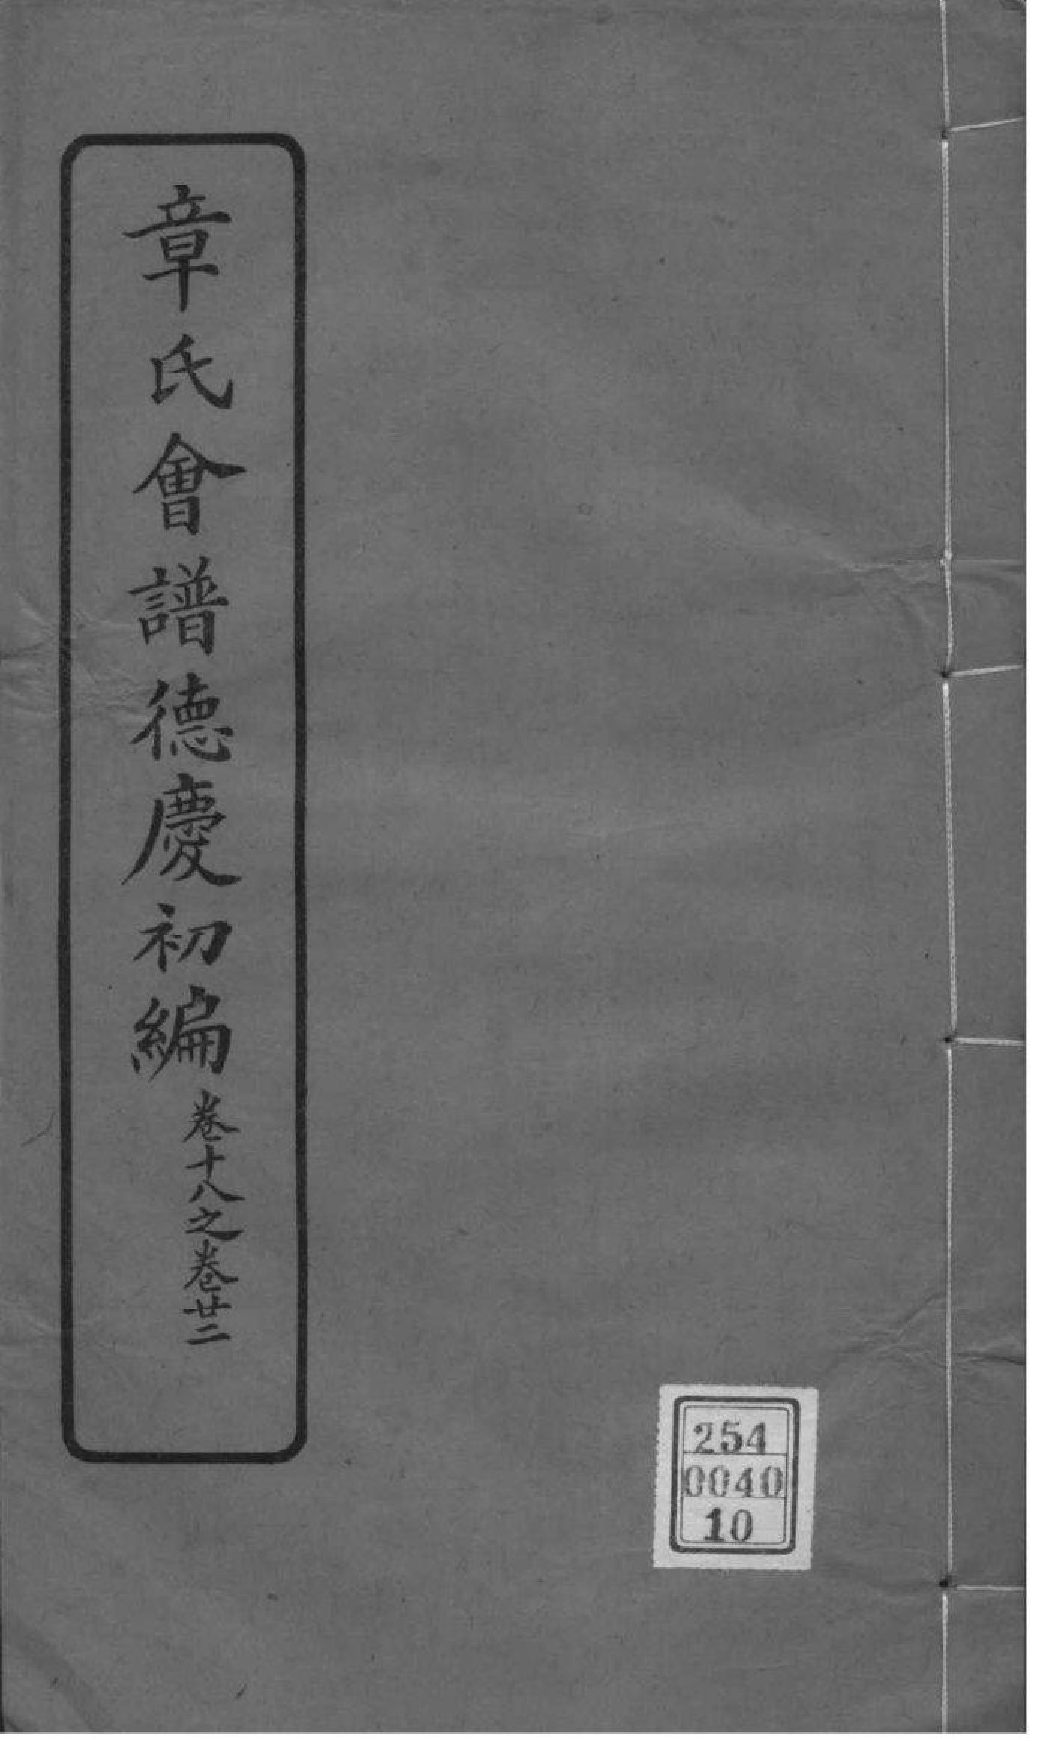 章氏會譜德慶初編
卷十八之卷廿二
254
0040
10